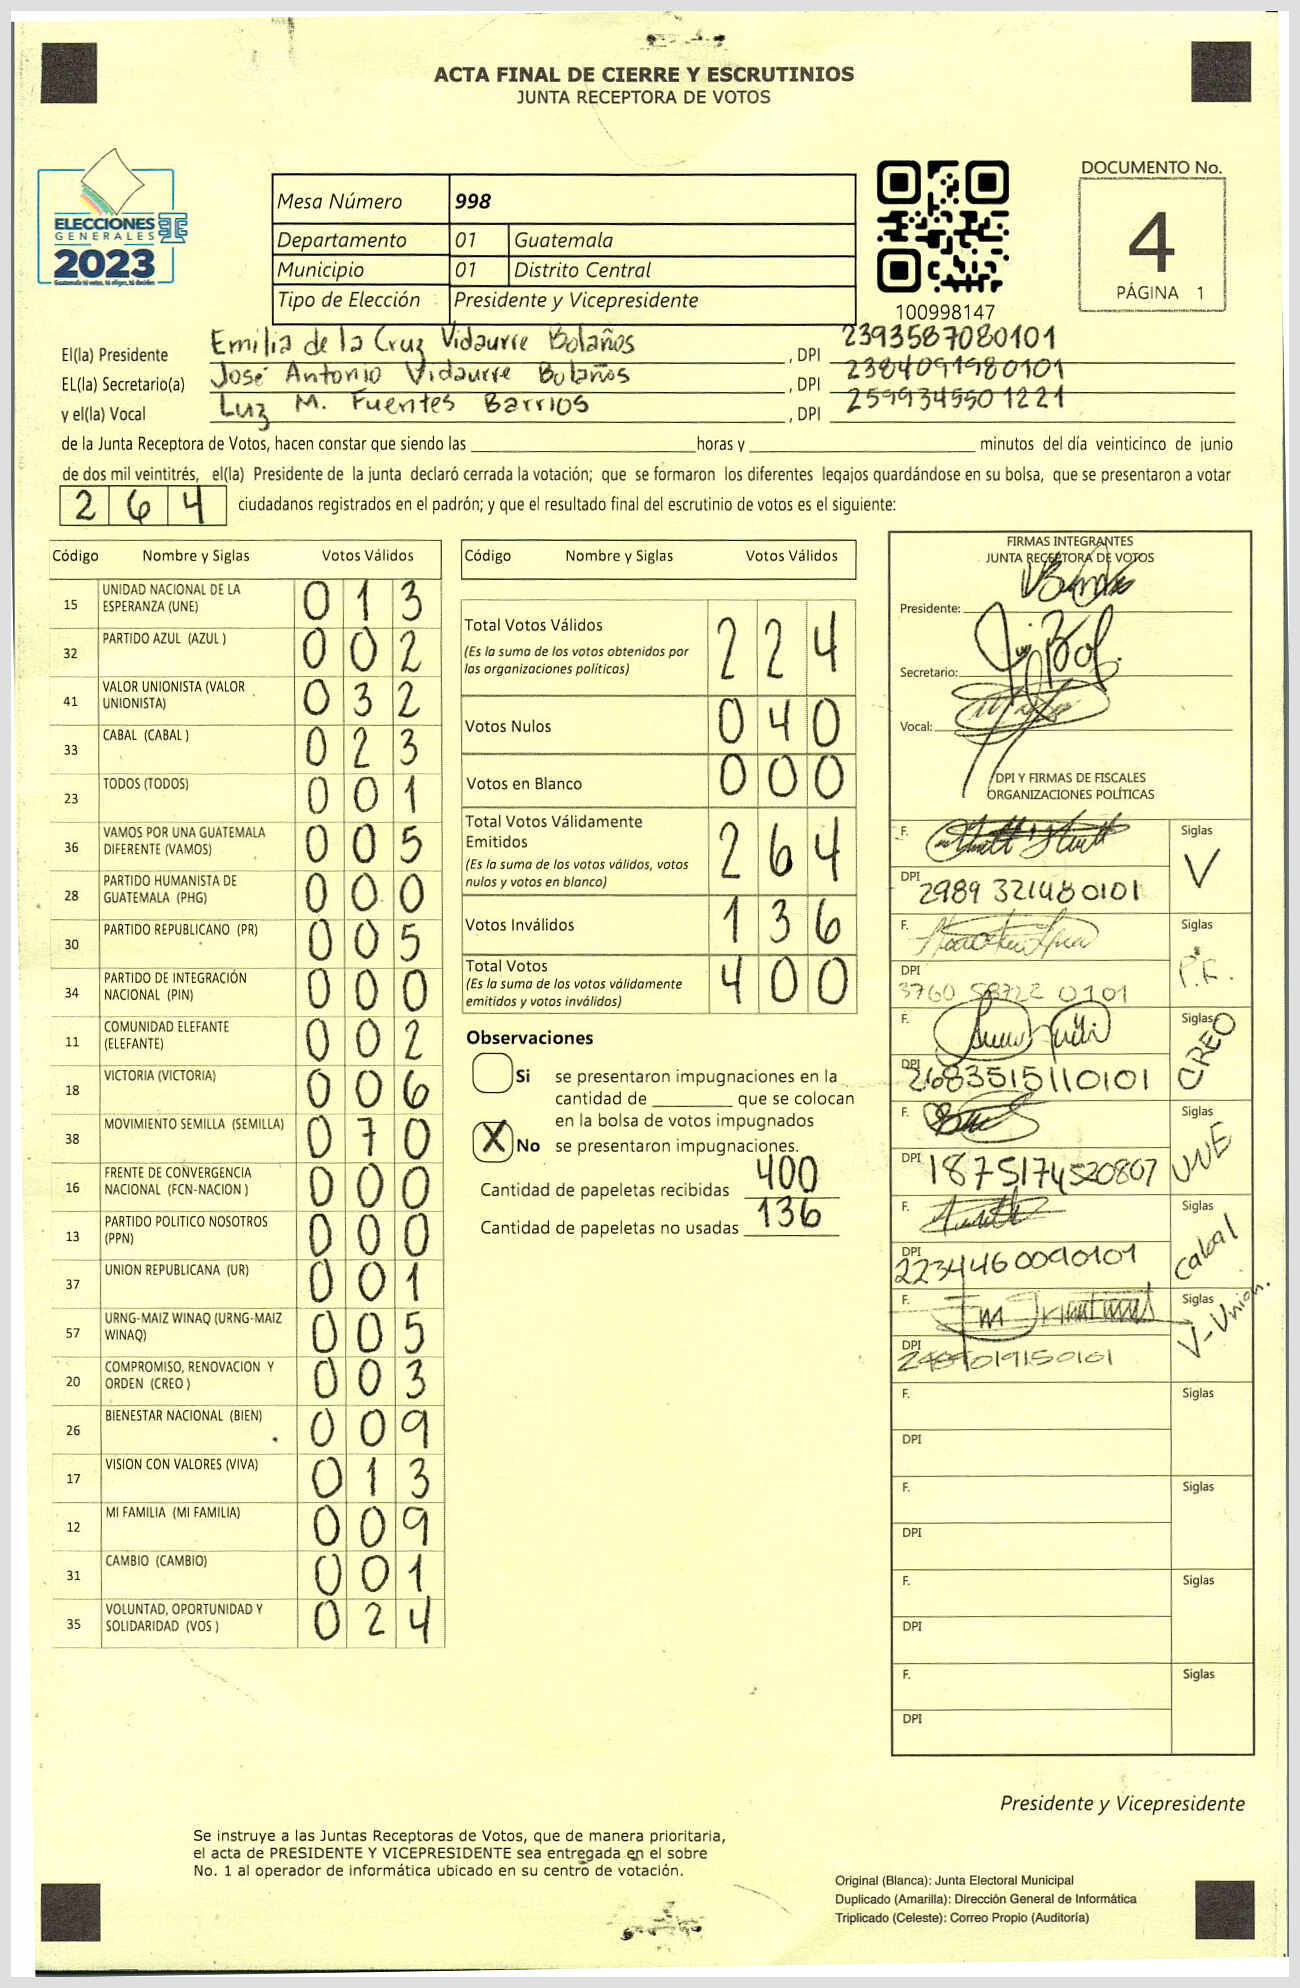 ACTA FINAL DE CIERRE Y ESCRUTINIOS
JUNTA RECEPTORA DE VOTOS
ELECCIONES
GENERALES
2023
Guatemala tú votas, tú eliges, tú decides
Mesa Número 998
Departamento 01 Guatemala
Municipio 01 Distrito Central
Tipo de Elección Presidente y Vicepresidente
100998147
DOCUMENTO No.
4
PÁGINA 1
El(la) Presidente Emilia de la Cruz Vidaurre Bolaños , DPI 2393587080101
EL(la) Secretario(a) José Antonio Vidaurre Bolaños , DPI 2384091980101
y el(la) Vocal Luz M. Fuentes Barrios , DPI 2599345501221
de la Junta Receptora de Votos, hacen constar que siendo las horas y minutos del día veinticinco de junio
de dos mil veintitrés, el(la) Presidente de la junta declaró cerrada la votación; que se formaron los diferentes legajos guardándose en su bolsa, que se presentaron a votar
264 ciudadanos registrados en el padrón; y que el resultado final del escrutinio de votos es el siguiente:
Código Nombre y Siglas Votos Válidos
15 UNIDAD NACIONAL DE LA ESPERANZA (UNE) 013
32 PARTIDO AZUL (AZUL ) 002
41 VALOR UNIONISTA (VALOR UNIONISTA) 032
33 CABAL (CABAL ) 023
23 TODOS (TODOS) 001
36 VAMOS POR UNA GUATEMALA DIFERENTE (VAMOS) 005
28 PARTIDO HUMANISTA DE GUATEMALA (PHG) 000
30 PARTIDO REPUBLICANO (PR) 005
34 PARTIDO DE INTEGRACIÓN NACIONAL (PIN) 000
11 COMUNIDAD ELEFANTE (ELEFANTE) 002
18 VICTORIA (VICTORIA) 006
38 MOVIMIENTO SEMILLA (SEMILLA) 070
16 FRENTE DE CONVERGENCIA NACIONAL (FCN-NACION ) 000
13 PARTIDO POLITICO NOSOTROS (PPN) 000
37 UNION REPUBLICANA (UR) 001
57 URNG-MAIZ WINAQ (URNG-MAIZ WINAQ) 005
20 COMPROMISO, RENOVACION Y ORDEN (CREO ) 003
26 BIENESTAR NACIONAL (BIEN) 009
17 VISION CON VALORES (VIVA) 013
12 MI FAMILIA (MI FAMILIA) 009
31 CAMBIO (CAMBIO) 001
35 VOLUNTAD, OPORTUNIDAD Y SOLIDARIDAD (VOS ) 024
Código Nombre y Siglas Votos Válidos
Total Votos Válidos 224
(Es la suma de los votos obtenidos por
las organizaciones políticas)
Votos Nulos 040
Votos en Blanco 000
Total Votos Válidamente
Emitidos 264
(Es la suma de los votos válidos, votos
nulos y votos en blanco)
Votos Inválidos 136
Total Votos 400
(Es la suma de los votos válidamente
emitidos y votos inválidos)
Observaciones
Si se presentaron impugnaciones en la
cantidad de que se colocan
en la bolsa de votos impugnados
X No se presentaron impugnaciones.
Cantidad de papeletas recibidas 400
Cantidad de papeletas no usadas 136
FIRMAS INTEGRANTES
JUNTA RECEPTORA DE VOTOS
Presidente:
Secretario:
Vocal:
DPI Y FIRMAS DE FISCALES
ORGANIZACIONES POLÍTICAS
F. Siglas V
DPI 2989 321480101
F. Siglas P.R.
DPI 0101
F. Siglas CREO
DPI 2683515110101
F. Siglas UNE
DPI 1875174520807
F. Siglas Cabal
DPI 2234460090101
F. Siglas V-Union.
DPI
F. Siglas
DPI
F. Siglas
DPI
F. Siglas
DPI
F. Siglas
DPI
Presidente y Vicepresidente
Se instruye a las Juntas Receptoras de Votos, que de manera prioritaria,
el acta de PRESIDENTE Y VICEPRESIDENTE sea entregada en el sobre
No. 1 al operador de informática ubicado en su centro de votación.
Original (Blanca): Junta Electoral Municipal
Duplicado (Amarilla): Dirección General de Informática
Triplicado (Celeste): Correo Propio (Auditoría)